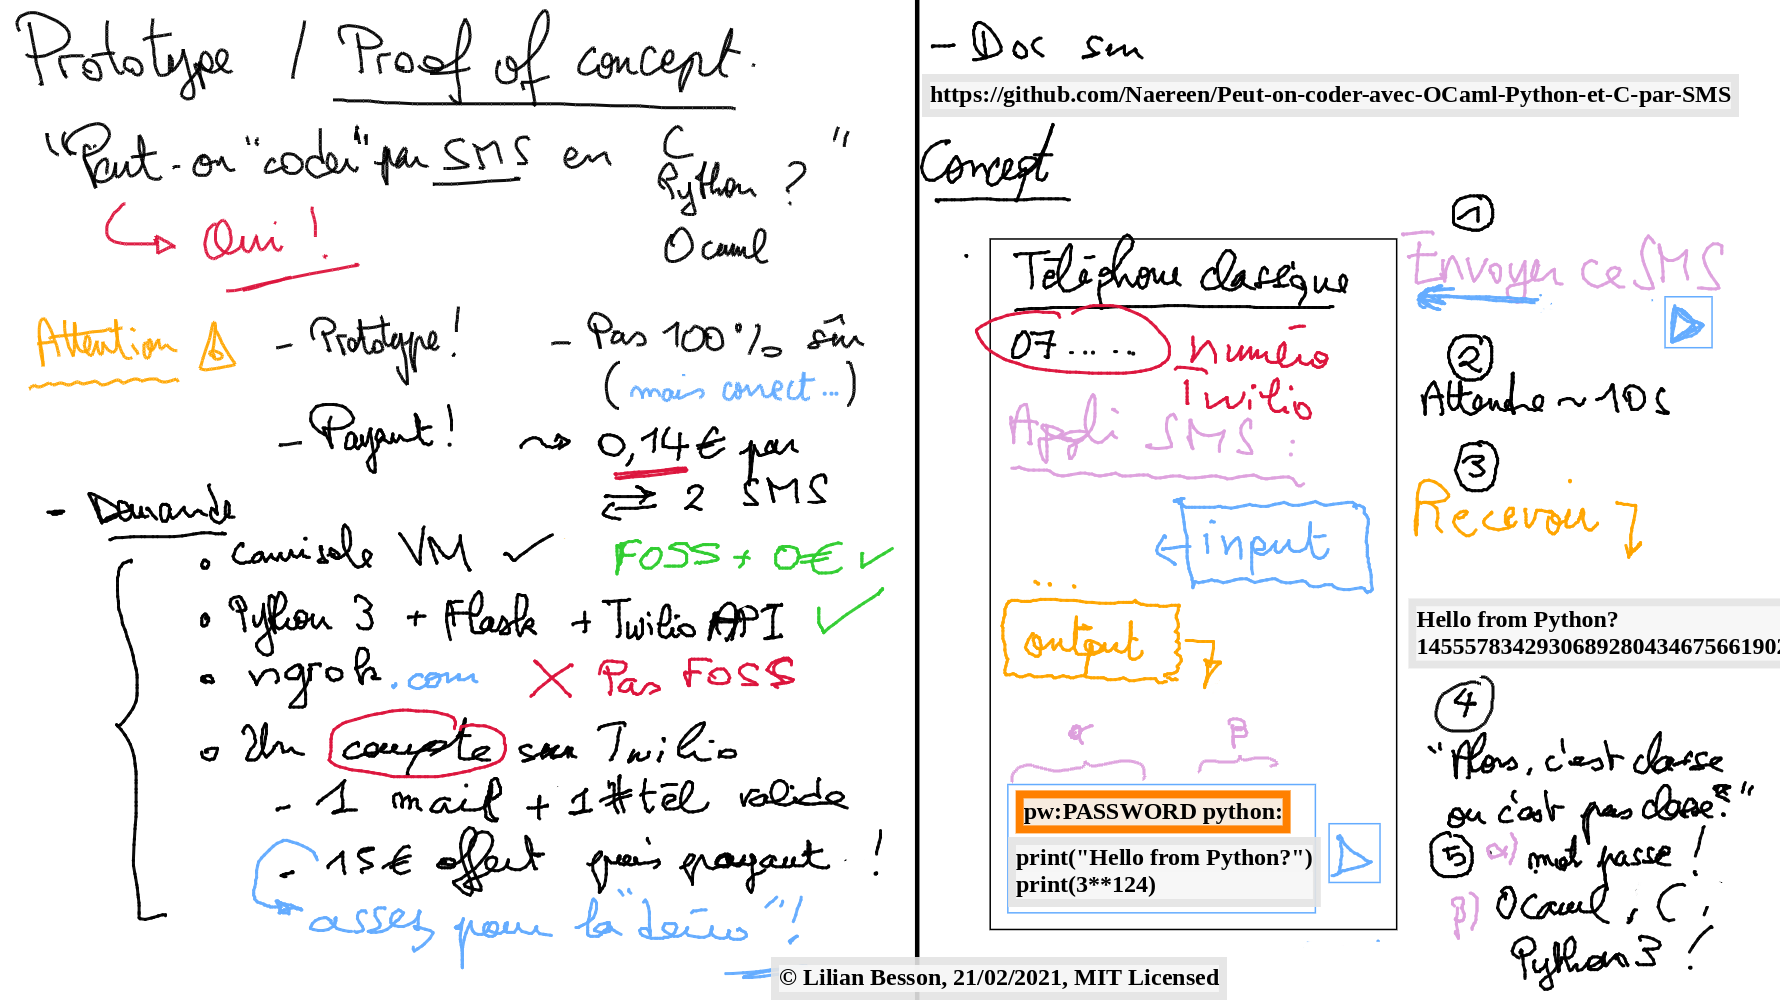 Prototype / Proof of concept.
"Peut-on "coder" par SMS en C
Python ? "
Ocaml
Oui !
Attention - Prototype ! - Pas 100% sûr
(mais correct...)
- Payant ! ~> 0,14€ par
2 SMS
- Demande
camisole VM ✓ FOSS + 0€ ✓
Python 3 + Flask + Twilio API ✓
ngrok.com X Pas FOSS
Un compte sur Twilio
- 1 mail + 1 #tél valide
- 15€ offert puis payant !
assez pour la "démo" !
- Doc sur
https://github.com/Naereen/Peut-on-coder-avec-OCaml-Python-et-C-par-SMS
Concept
Téléphone classique
07 .. ...
numéro
Twilio
Appli SMS :
input
...
output
α β
pw:PASSWORD python:
print("Hello from Python?")
print(3**124)
1
Envoyer ce SMS
2
Attendre ~ 10s
3
Recevoir
Hello from Python?
145557834293068928043467566190
4
"Alors, c'est classe
ou c'est pas classe ? "
5 α) mot passe !
β) Ocaml, C,
Python 3 !
© Lilian Besson, 21/02/2021, MIT Licensed